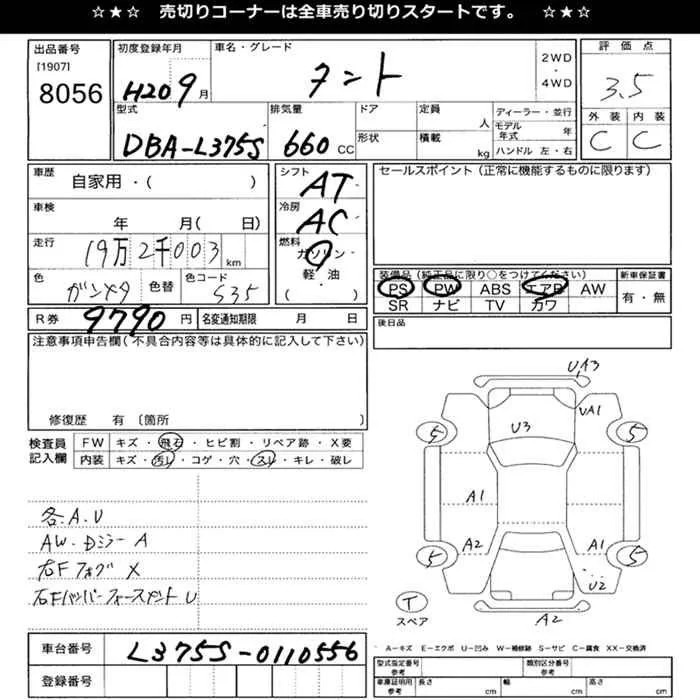 ☆★☆　売切りコーナーは全車売り切りスタートです。　☆★☆
出品番号
[1907]
8056
初度登録年月
H20 9月
車名・グレード
タント
2WD
・
4WD
評価点
3.5
外装 内装
C C
型式
DBA-L375S
排気量
660 CC
ドア
形状
定員
人
積載
kg
ディーラー・並行
モデル年式 年
ハンドル 左・右
車歴
自家用・( )
車検
年 月( 日)
走行
19万2千003 km
色
ガンメタ
色替
色コード
S35
シフト
AT
冷房
AC
燃料
ガソリン
・
軽・油
( )
セールスポイント（正常に機能するものに限ります）
装備品（純正品に限り○をつけてください）
PS PW ABS エアB AW
SR ナビ TV カワ
新車保証書
有・無
R券 9790 円 名変通知期限 月 日
後日品
注意事項申告欄(不具合内容等は具体的に記入して下さい)
修復歴 有 〔箇所
検査員
記入欄
FW キズ・飛石・ヒビ割・リペア跡・X要
内装 キズ・汚レ・コゲ・穴・スレ・キレ・破レ
各A.U
AW・Dミラー A
右Fフォグ X
右Fバンパーフォースメント U
UA3
UA1
U3
5
5
A1
A2
A1
5
5
U2
T
スペア
A2
車台番号 L375S-0110556
登録番号
A-キズ E-エクボ U-凹み W-補修跡 S-サビ C-腐食 XX-交換済
型式指定番号
参考
類別区分番号
参考
車庫証明用
参考
長さ cm
幅 cm
高さ cm